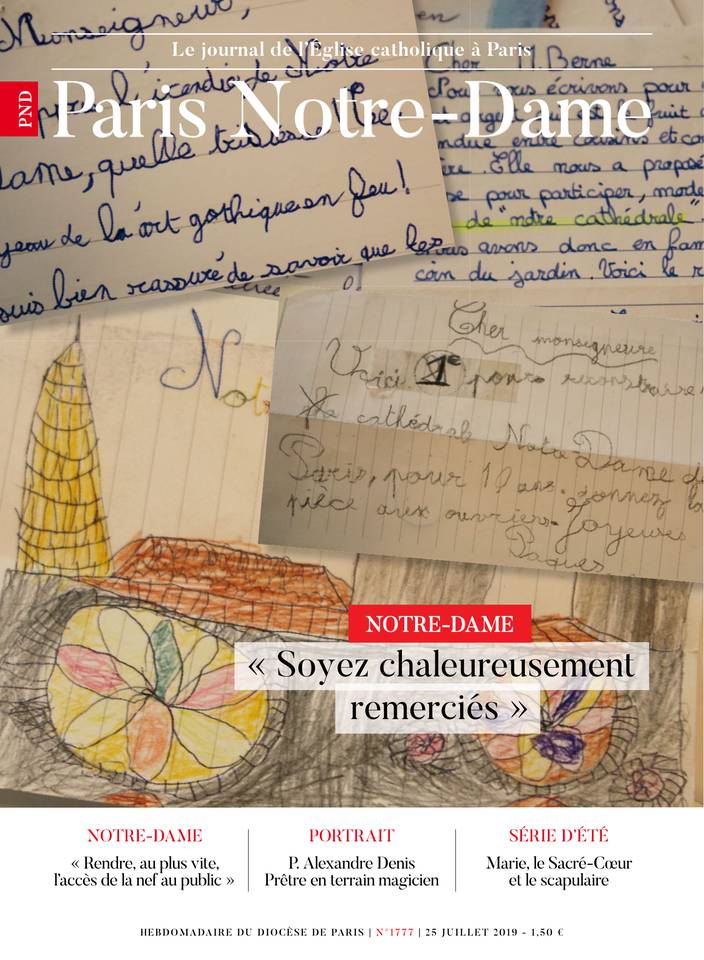 Le journal de l'Église catholique à Paris
PND
Paris Notre-Dame
Monseigneur,
l'incendie de Notre
Dame, quelle tristesse!
de l'art gothique en feu!
suis bien rassuré de savoir que les
en
Cher M. Berne
Pour vous écrivons pour
entre cousins et
Elle nous a proposé
pour participer,
de "notre cathédrale"
avons donc en fam
coin du jardin. Voici le r
Not
Cher monseigneure
Voici 1e pour reconstruire
la cathédrale Notre Dame d
Paris, pour 10 ans. donnez la
pièce aux ouvriers. Joyeuses
Paques
NOTRE-DAME
« Soyez chaleureusement
remerciés »
NOTRE-DAME
« Rendre, au plus vite,
l'accès de la nef au public »
PORTRAIT
P. Alexandre Denis
Prêtre en terrain magicien
SÉRIE D'ÉTÉ
Marie, le Sacré-Cœur
et le scapulaire
HEBDOMADAIRE DU DIOCÈSE DE PARIS | N°1777 | 25 JUILLET 2019 - 1,50 €